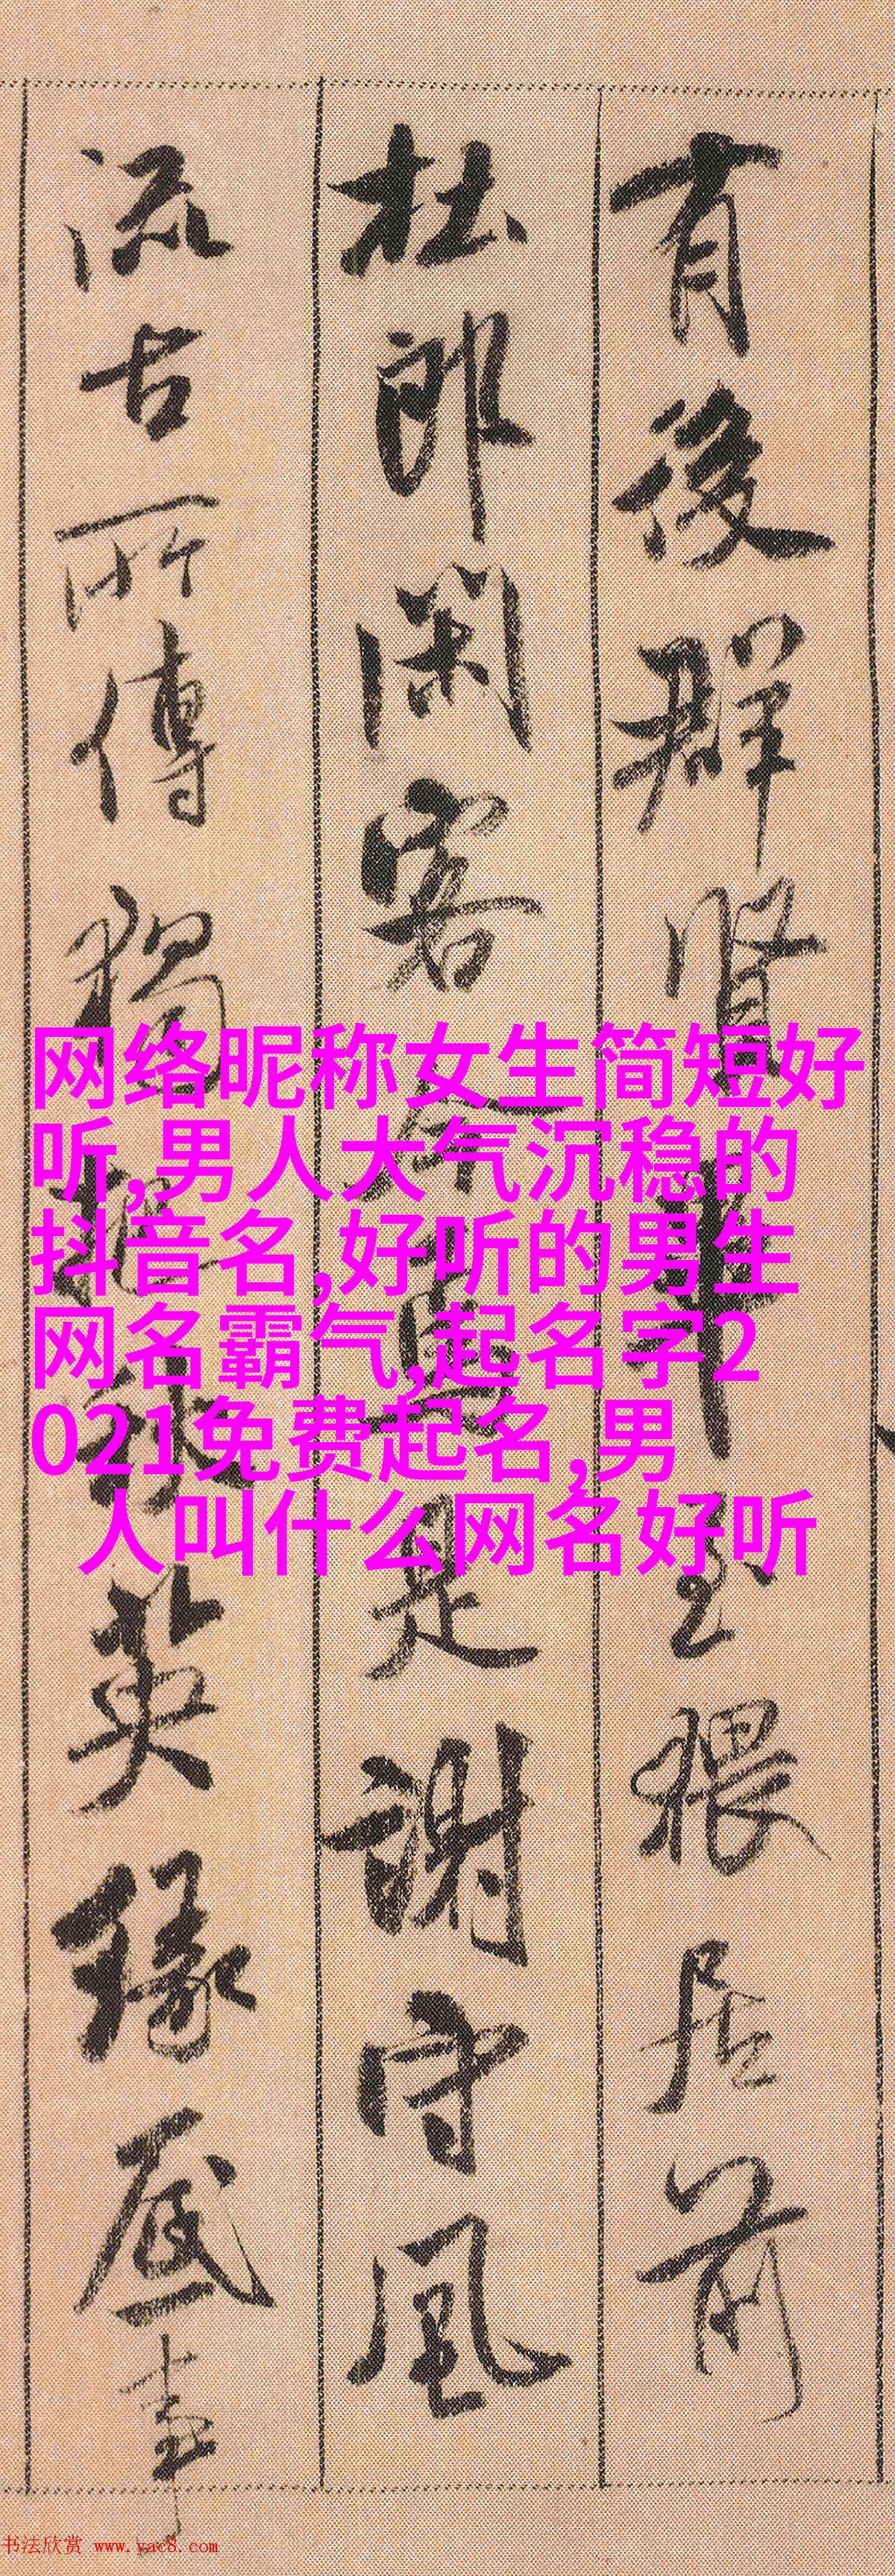 有後群賢畢至猥居前
杜郎閑客今焉是謝守風
流古所傳獨把秋英緣底事
网络昵称女生简短好
听,男人大气沉稳的
抖音名,好听的男生
网名霸气,起名字2
021免费起名,男
人叫什么网名好听
书法欣赏 www.yac8.com